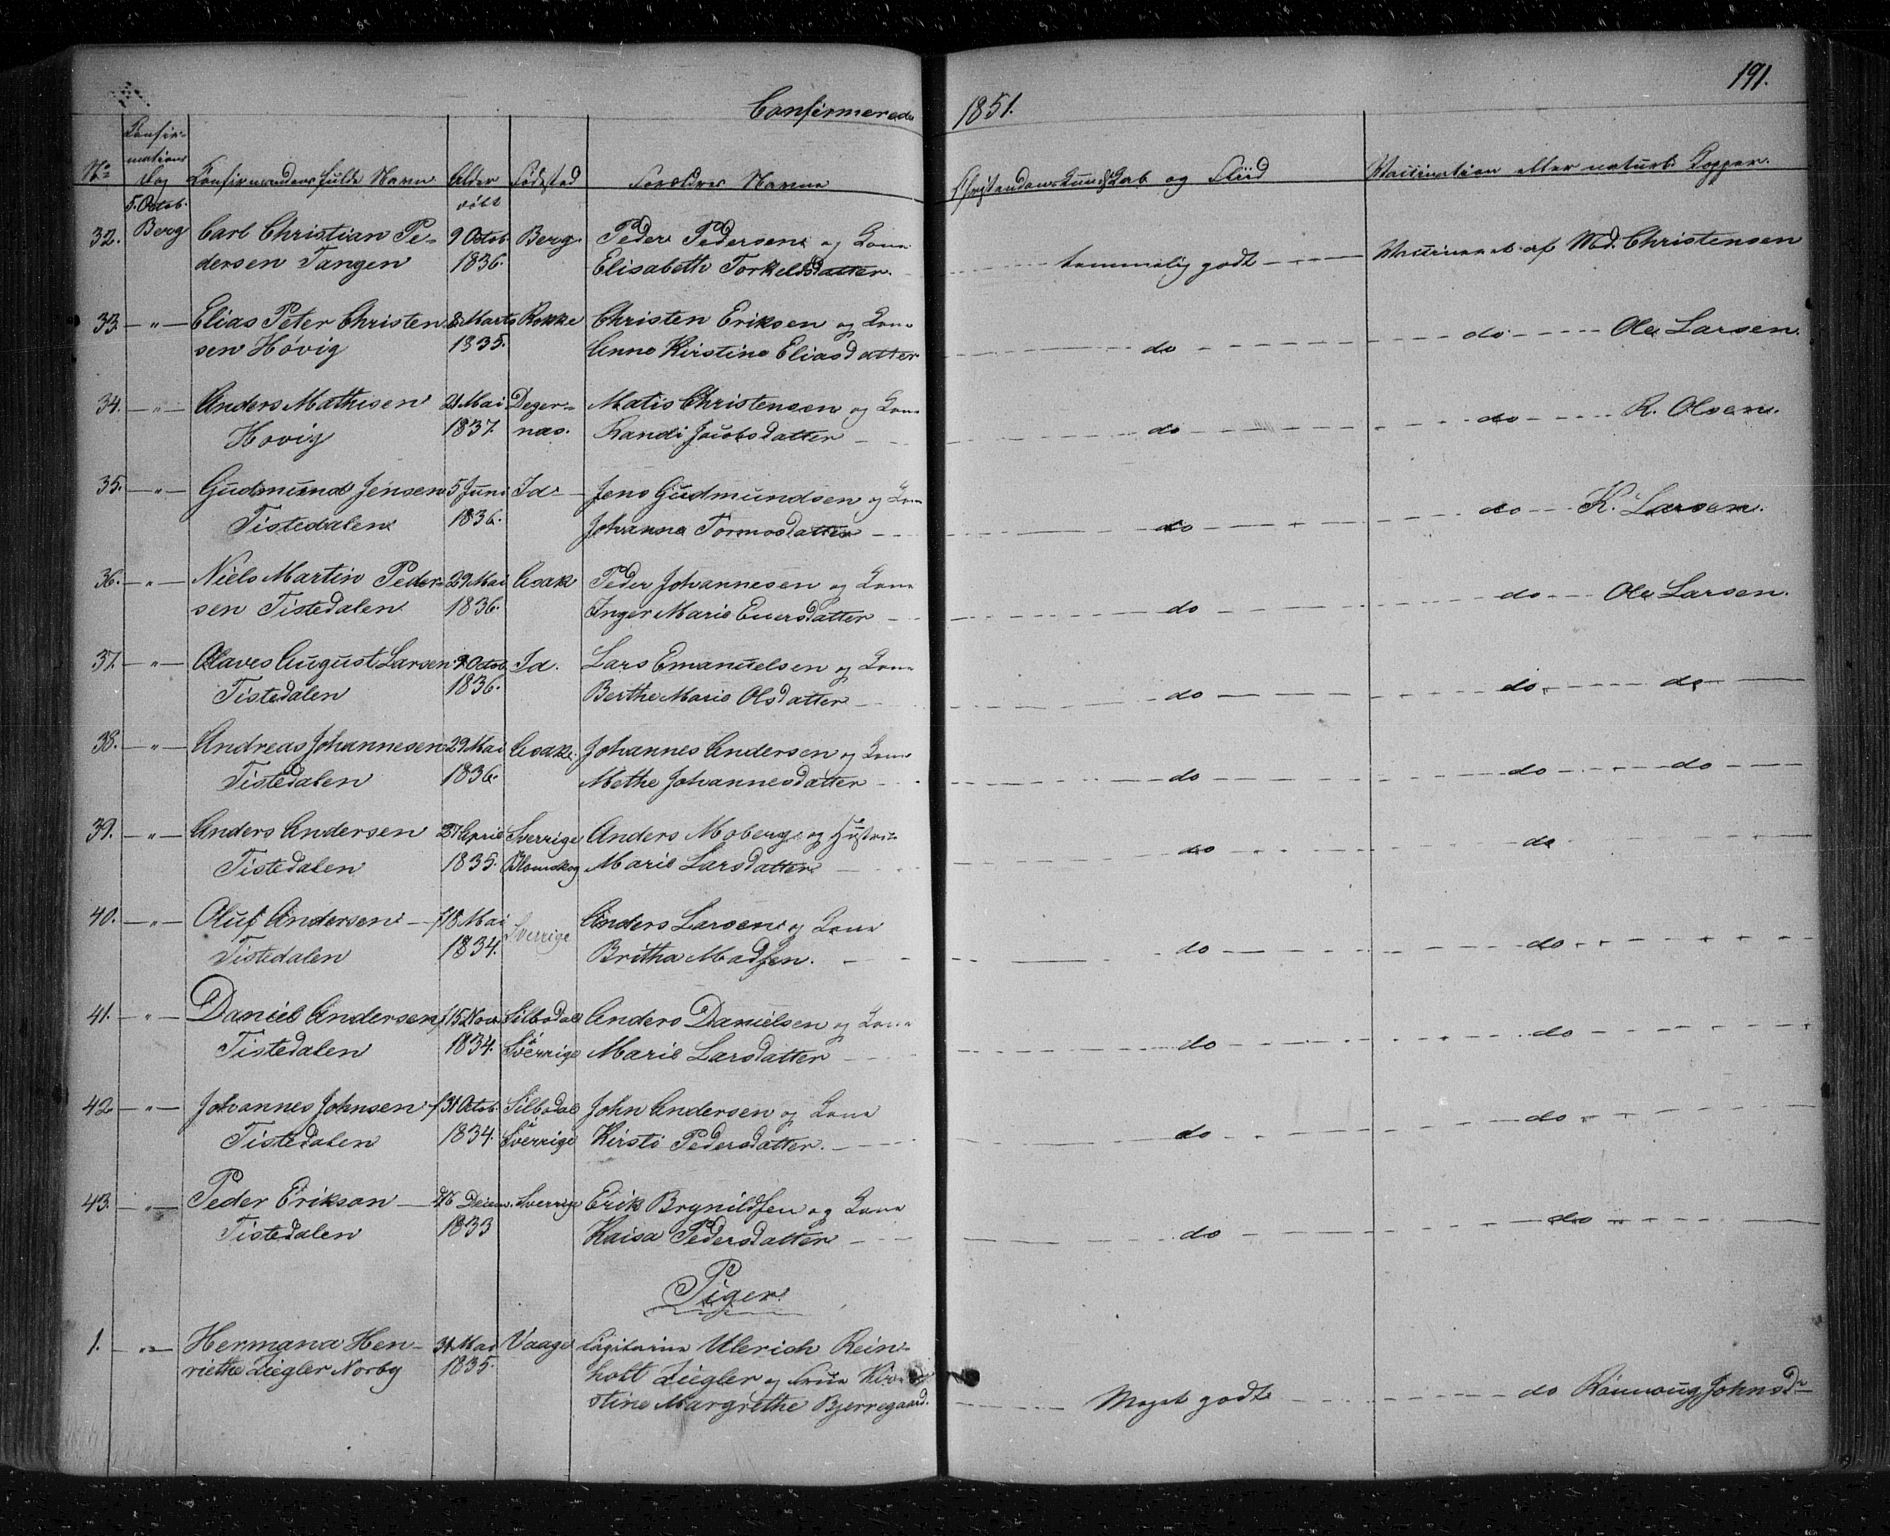 191.
Confirmerede 1851.
No Confirmations Dag Confirmandens fulde Navn Alder Fødested Forældres Navne Christendoms Kundskab og Fliid Vaccination eller naturl. Kopper.
5. Octob. født
32. Berg Carl Christian Pe- 9 Octob. Berg. Peder Pedersen og Kone temmelig godt Vaccineret af Md. Christensen
dersen Tangen 1836. Elisabeth Torkeldsdatter.
33. — " — Elias Peter Christen 8 Marts Rokke Christen Eriksen og Kone do do Ole Larsen.
sen Høvig 1835. Anne Kirstine Eliasdatter
34. — " — Anders Mathisen 21 Mai Deger- Matis Christensen og Kone do do R. Olsen.
Hovig 1837. næs. Randi Jacobsdatter
35. — " — Gudmund Jensen 5 Juni Id Jens Gudmundsen og Kone do do K. Larsen.
Tistedalen 1836. Johanna Tormosdatter
36. — " — Niels Martin Peder- 29 Mai Asak Peder Johannesen og Kone do do Ole Larsen.
sen Tistedalen 1836. Inger Marie Euersdatter
37. — " — Olaves August Larsen 9 Octob. Id. Lars Emanuelsen og Kone do do do
Tistedalen 1836. Berthe Marie Olsdatter
38. — " — Andreas Johannesen 29 Mai Asak. Johannes Andersen og Kone do do do
Tistedalen 1836. Methe Johannesdatter
39. — " — Anders Andersen 27 April Sverrige Anders Moberg og Hustrue do do
Tistedalen 1835. Blomskog Marie Larsdatter
40. — " — Oluf Andersen 18 Mai Sverrige Anders Larsen og Kone do do
Tistedalen 1834. Britha Madsen.
41. — " — Daniel Andersen 15 Nov. Silbodal Anders Danielsen og Kone do do
Tistedalen 1834. Sverrige Marie Larsdatter
42 — " — Johannes Johnsen 31 Octob. Silbodal John Andersen og Kone do do
Tistedalen 1834. Sverrige Kirsti Pedersdatter.
43. — " — Peder Erikson 26 Decem. Sverrige Erik Brynildsen og Kone do do
Tistedalen 1833 Kaisa Pedersdatter
Piger.
1. — " — Hermana Hen- 31 Mai Vaage Capitaine Ulerich Rein-
riethe Ziegler Norby 1835. holt Ziegler og Frue Kir-
stine Margrethe Bjerregaard. Meget godt do Rönnoug Johnsd